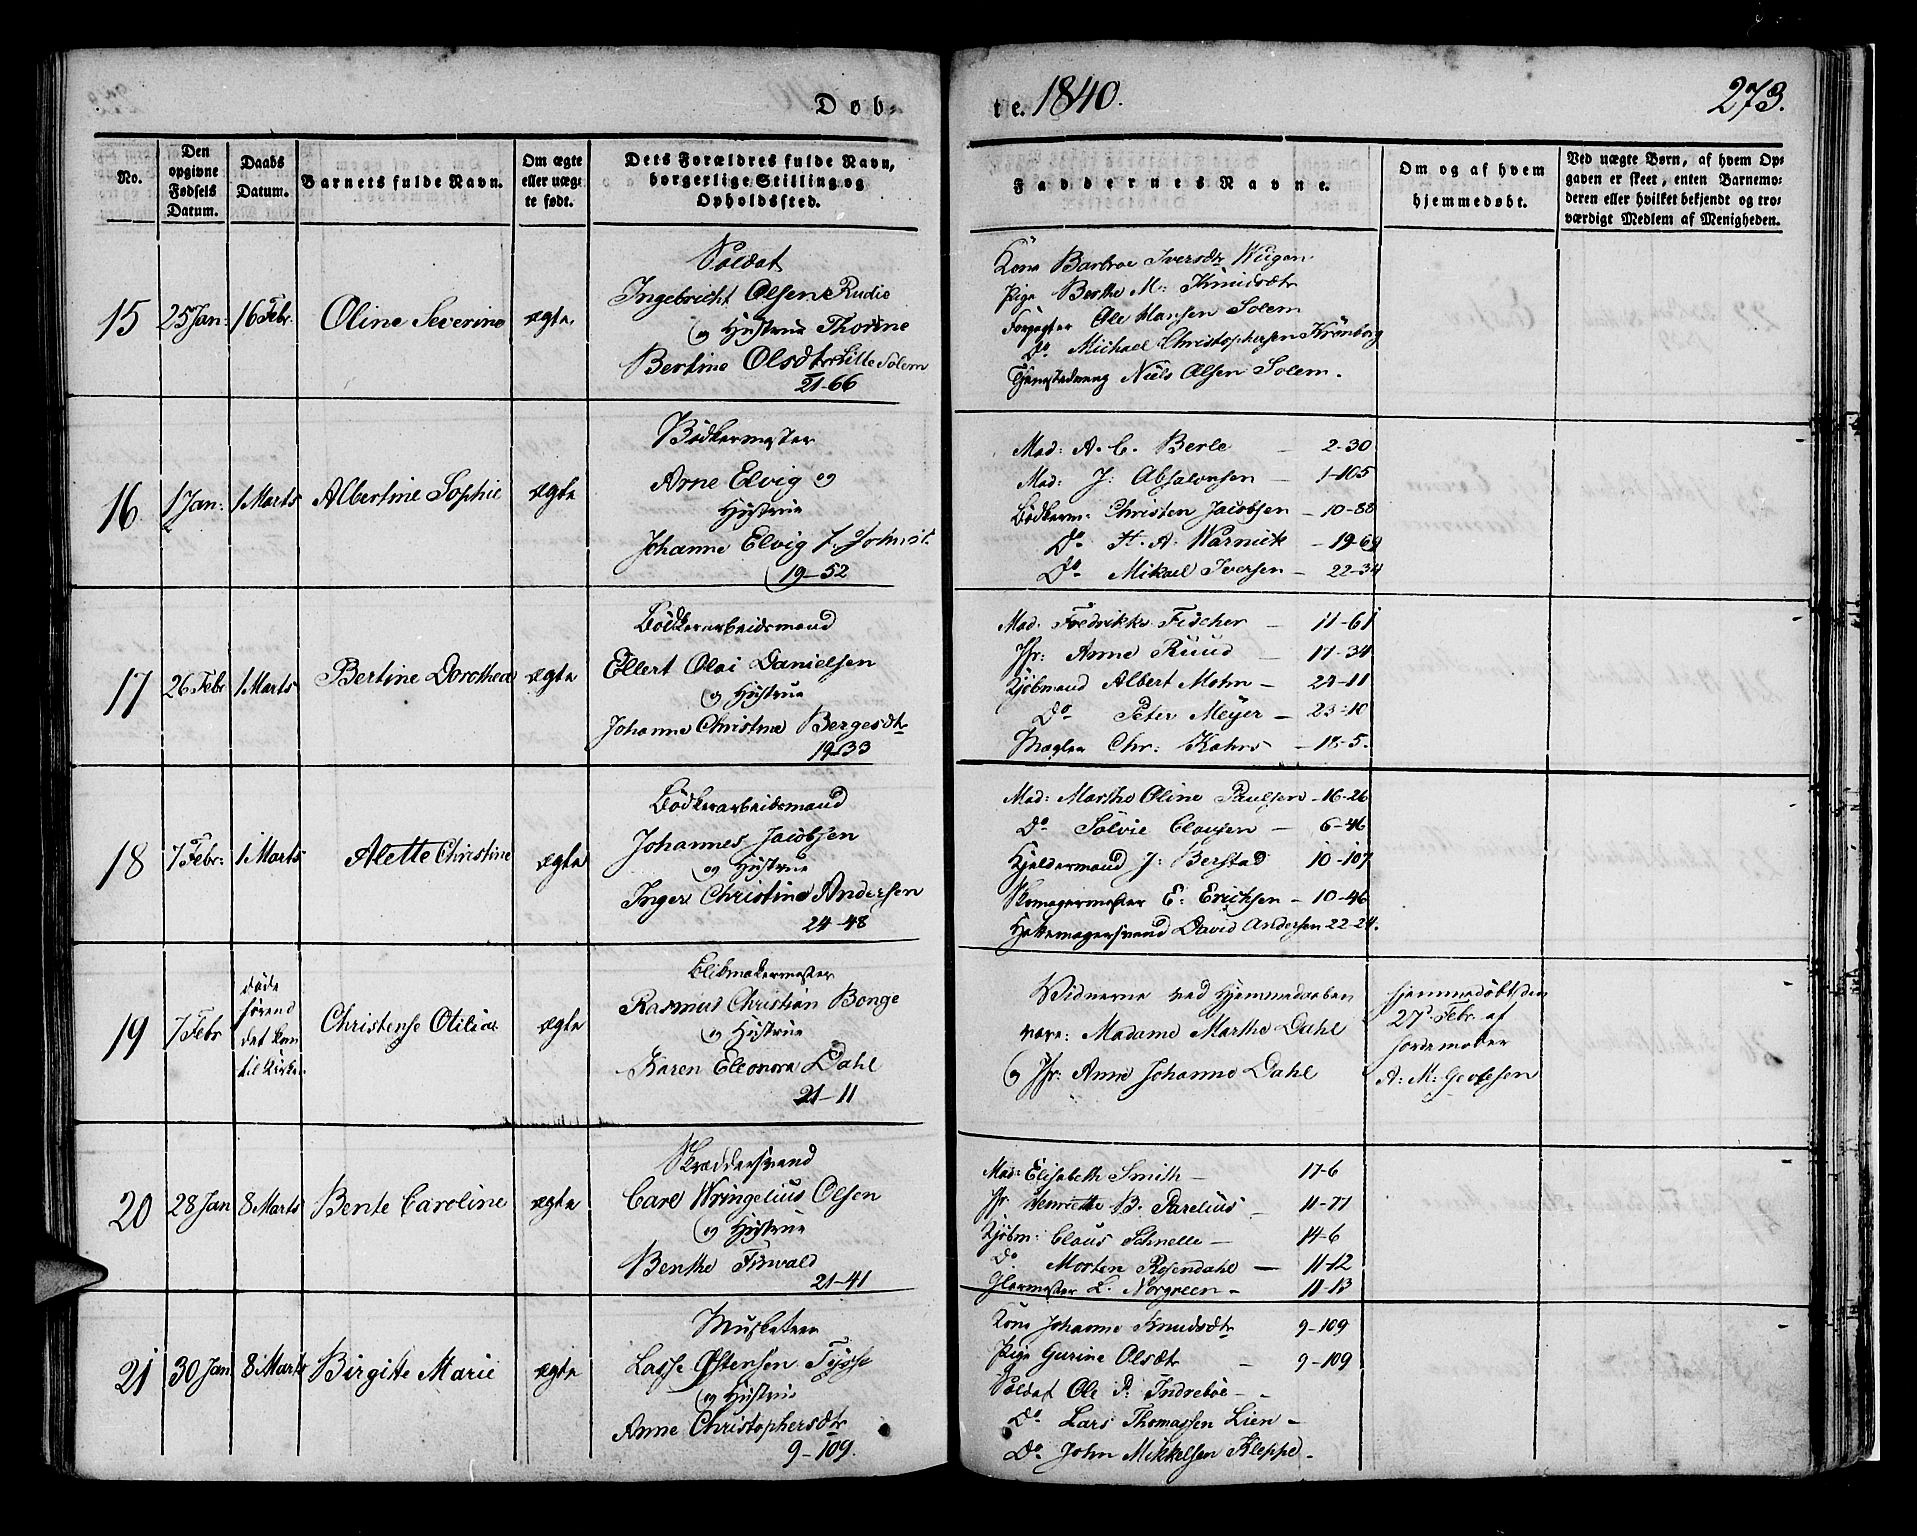 Døb-
te. 1840.
273.
No.
Den opgivne Fødsels Datum.
Daabs Datum.
Barnets fulde Navn.
Om ægte eller uægte født.
Dets Forældres fulde Navn, borgerlige Stilling og Opholdssted.
Faddernes Navne.
Om og af hvem hjemmedøbt.
Ved uægte Børn, af hvem Opgaven er skeet, enten Barnemoderen eller hvilket bekjendt og troværdigt Medlem af Menigheden.
15 25 Jan: 16 Febr. Oline Severine ægte
Soldat
Ingebricht Olsen Rudie
og Hustrue Thorine
Bertine Olsdtr Lille Solem
21-66
Kone Barbroe Iversdtr Wugen
Pige Berthe M: Knudsdtr
Ole Hansen Solem
Do Michael Christophersen Krønborg
Niels Olsen Solem.
16. 1 Jan: 1 Marts Albertine Sophie ægte
Bødkermester
Arne Elvig og
Hustrue
Johanne Elvig f.
19-52
Mad: A. C. Berle - 2-30
Mad: J: Absalonsen - 1-105
Bødkerm: Christen Jacobsen - 10-88
Do H. A. Warnick - 19-69
Do Mikael Iversen - 22-34
17 26 Febr 1 Marts Bertine Dorothea ægte
Bødkerarbeidsmand
Ellert Olai Danielsen
og Hustrue
Johanne Christine Bergesdtr
19-33
Mad. Fredrikke Fischer - 11-61
Jfr: Anne Ruud - 17-34
Kjøbmand Albert Mohn - 24-11
Do Peter Meyer - 23-10
Mægler Chr: Kahrs - 18-5.
18 7 Febr: 1 Marts Alette Christine ægte
Bødkerarbeidsmand
Johannes Jacobsen
og Hustrue
Inger Christine Andersen
24-48
Mad: Marthe Oline Paulsen - 16-26
Do Sølvie Clausen - 6-46
Kjeldermand J: Berstad 10-107
Skomagermester E: Erichsen - 10-46
David Andersen 22-24.
19 7 Febr døde førend det kom til Kirken Christense Otilia ægte
Blikmakermester
Rasmus Christian Bonge
og Hustrue
Karen Eleonora Dahl
21-11
Vidnerne ved Hjemmedaaben
vare: Madame Marthe Dahl
og Jfr: Anne Johanne Dahl
hjemmedøbt den
27 Febr. af
Jordemoder
A: M:
20 28 Jan 8 Marts Bente Caroline ægte
Skræddersvend
Carl Wringelius Olsen
og Hustrue
Benthe Finvald
21-41
Mad: Elisabeth Smith - 17-6
Jfr Henriette B. Parelius - 11-77
Kjøbm: Claus Schnelle - 14-6
Do Morten Rosendahl - 11-12
Glarmester L. Norgreen - 11-13
21 30 Jan 8 Marts Birgitte Marie ægte
Musketeer
Lasse Østensen Tysse
og Hustrue
Anne Christophersdtr
9-109.
Kone Johanne Knudsdtr 9-109
Pige Gurine Olsdtr - 9-109
Soldat Ole P: Indrebøe -
Do Lars Thomassen Lien -
Do John Mikkelsen Kleppe -